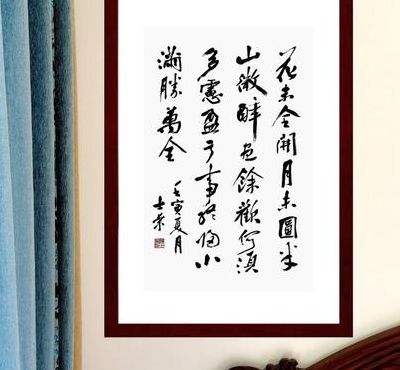 花未全開月未圓半
山微醉尽餘歡何須
多慮盈亏事終归小
滿勝萬全
壬寅夏月